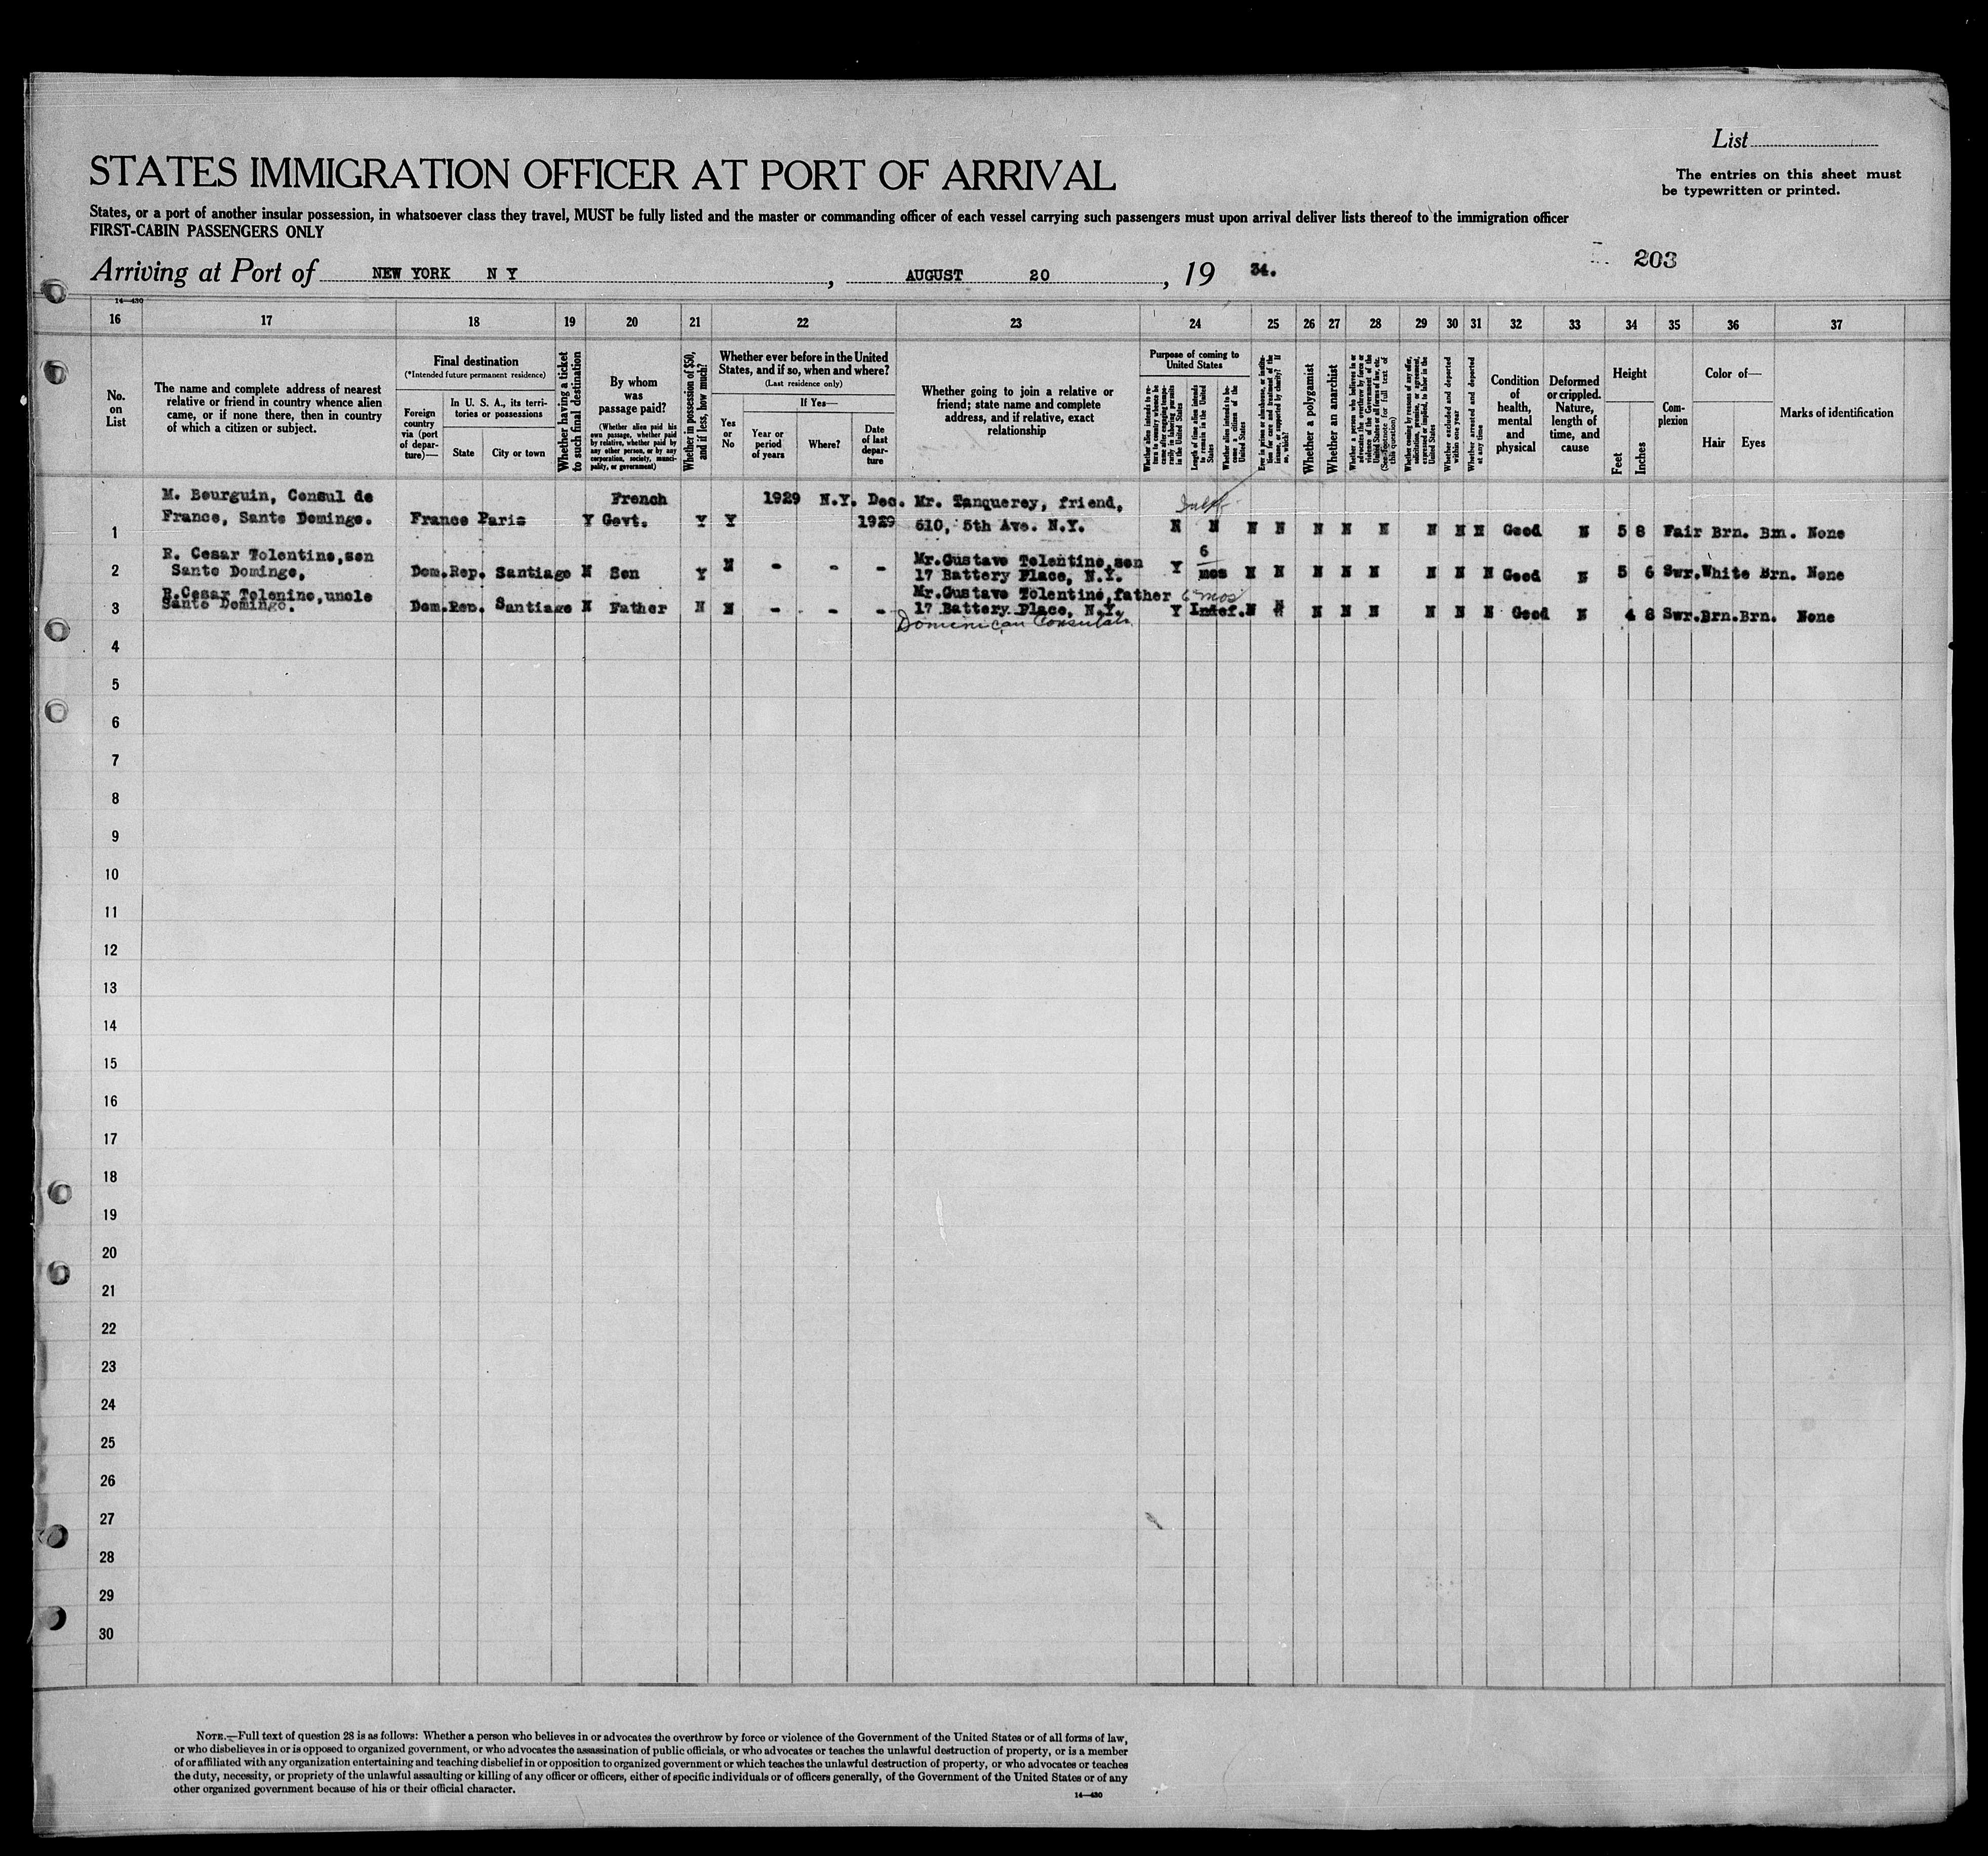 List
The entries on this sheet must
be typewritten or printed.
STATES IMMIGRATION OFFICER AT PORT OF ARRIVAL
States, or a port of another insular possession, in whatsoever class they travel, MUST be fully listed and the master or commanding officer of each vessel carrying such passengers must upon arrival deliver lists thereof to the immigration officer
FIRST-CABIN PASSENGERS ONLY
203
Arriving at Port of NEW YORK N Y, AUGUST 20, 19 34.
14—430
16 17 18 19 20 21 22 23 24 25 26 27 28 29 30 31 32 33 34 35 36 37
No.
on
List
The name and complete address of nearest
relative or friend in country whence alien
came, or if none there, then in country
of which a citizen or subject.
Final destination
(*Intended future permanent residence)
Foreign
country
via (port
of depar-
ture)—
In U. S. A., its terri-
tories or possessions
State
City or town
Whether having a ticket
to such final destination
By whom
was
passage paid?
(Whether alien paid his
own passage, whether paid
by relative, whether paid by
any other person, or by any
corporation, society, munici-
pality, or government)
Whether in possession of $50,
and if less, how much?
Whether ever before in the United
States, and if so, when and where?
(Last residence only)
Yes
or
No
If Yes—
Year or
period
of years
Where?
Date
of last
depar-
ture
Whether going to join a relative or
friend; state name and complete
address, and if relative, exact
relationship
Purpose of coming to
United States
Whether alien intends to re-
turn to country whence he
came after engaging tempo-
rarily in laboring pursuits
in the United States
Length of time alien intends
to remain in the United
States
Whether alien intends to be-
come a citizen of the
United States
Ever in prison or almshouse, or institu-
tion for care and treatment of the
insane, or supported by charity? If
so, which?
Whether a polygamist
Whether an anarchist
Whether a person who believes in or
advocates the overthrow by force or
violence of the Government of the
United States or all forms of law, etc.
(See footnote for full text of
this question)
Whether coming by reason of any offer,
solicitation, promise, or agreement,
expressed or implied, to labor in the
United States
Whether excluded and deported
within one year
Whether arrested and deported
at any time
Condition
of
health,
mental
and
physical
Deformed
or crippled.
Nature,
length of
time, and
cause
Height
Feet
Inches
Com-
plexion
Color of—
Hair Eyes
Marks of identification
M. Bourguin, Consul de French 1929 N.Y. Dec. Mr. Tanquerey, friend,
1 France, Santo Domingo. France Paris Y Govt. Y Y 1929 610, 5th Ave. N.Y. N N N N N N N N N N Good N 5 8 Fair Brn. Brn. None
R. Cesar Tolentino,son Mr.Gustavo Tolentino,son 6
2 Santo Domingo, Dom.Rep. Santiago N Son Y N - - - 17 Battery Place, N.Y. Y mos N N N N N N N N Good N 5 6 Swr.White Brn. None
R.Cesar Tolenino,uncle Mr.Gustavo Tolentino,father 6 mos
3 Santo Domingo. Dom.Rep. Santiago N Father N N - - - 17 Battery Place, N.Y. Y Indef.N N N N N N N N Good N 4 8 Swr.Brn.Brn. None
Dominican Consulate
4
5
6
7
8
9
10
11
12
13
14
15
16
17
18
19
20
21
22
23
24
25
26
27
28
29
30
NOTE.—Full text of question 28 is as follows: Whether a person who believes in or advocates the overthrow by force or violence of the Government of the United States or of all forms of law,
or who disbelieves in or is opposed to organized government, or who advocates the assassination of public officials, or who advocates or teaches the unlawful destruction of property, or is a member
of or affiliated with any organization entertaining and teaching disbelief in or opposition to organized government or which teaches the unlawful destruction of property, or who advocates or teaches
the duty, necessity, or propriety of the unlawful assaulting or killing of any officer or officers, either of specific individuals or of officers generally, of the Government of the United States or of any
other organized government because of his or their official character.
14—430